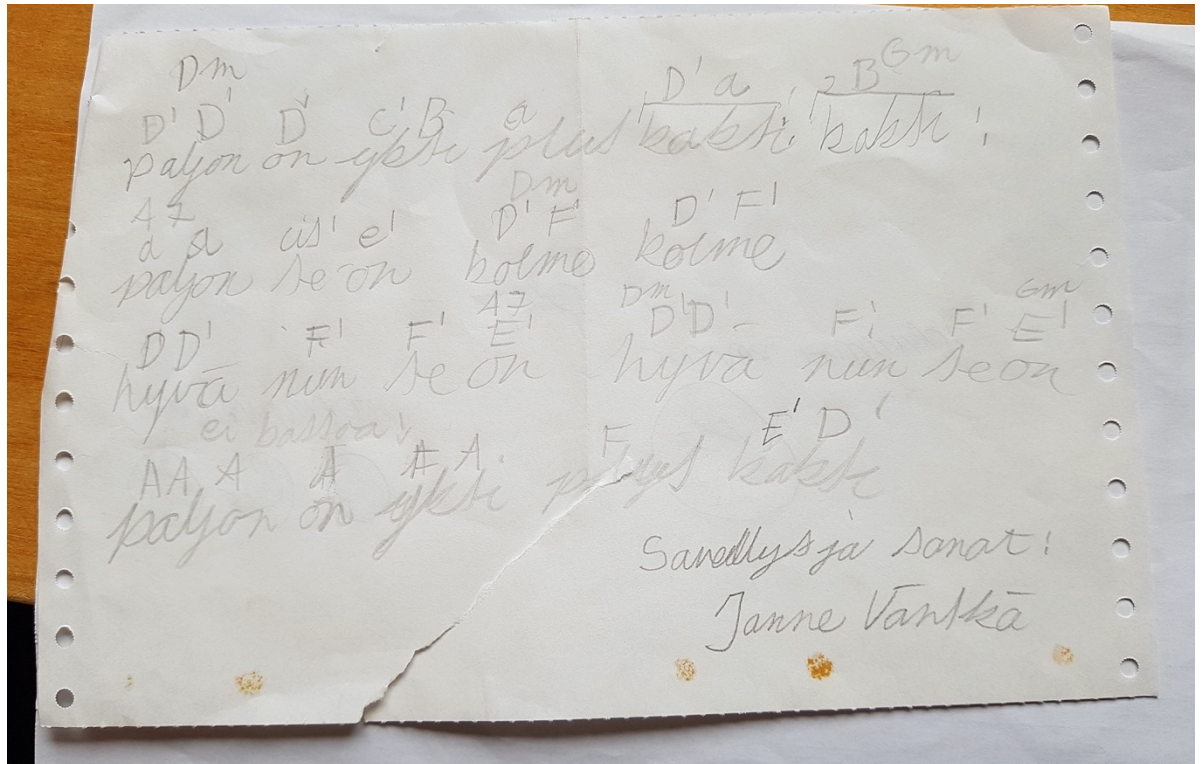 Dm D'a 2B Gm
D' D' D' c' B a
paljon on yksi plus kaksi kaksi
A7 Dm
a a cis' e' D' F' D' F'
paljon se on kolme kolme
A7 Dm Gm
D D' F' F' E' D' D' F' F' E'
hyvä niin se on hyvä niin se on
ei bassoa
A A A A A A F E' D'
paljon on yksi plus kaksi
Sävellys ja sanat:
Janne Väntkä